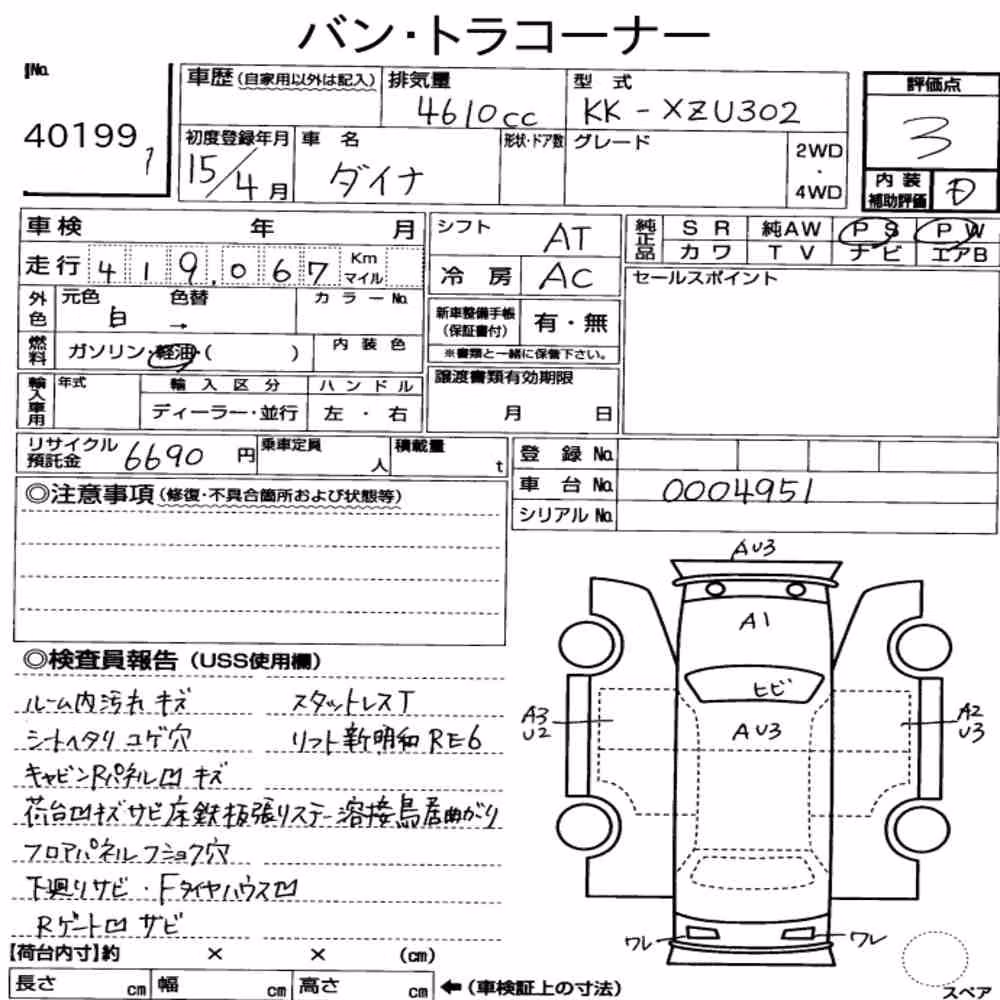 バン・トラコーナー
No.
40199
1
車歴 (自家用以外は記入)
排気量
4610cc
型式
KK-XZU302
評価点
3
初度登録年月
15/4月
車名
ダイナ
形状・ドア数
グレード
2WD
・
4WD
内装
補助評価
D
車検 年 月
走行 419,067 Km
マイル
シフト AT
冷房 AC
純正品
SR 純AW PS PW
カワ TV ナビ エアB
セールスポイント
外色
元色 色替
白 →
カラーNo.
新車整備手帳
(保証書付)
有・無
※書類と一緒に保管下さい。
燃料
ガソリン・軽油・( )
内装色
譲渡書類有効期限
月 日
輸入車用
年式
輸入区分
ディーラー・並行
ハンドル
左・右
リサイクル
預託金 6690 円
乗車定員
人
積載量
t
登録No.
車台No. 0004951
シリアルNo.
◎注意事項 (修復・不具合箇所および状態等)
◎検査員報告 (USS使用欄)
ルーム内汚れ キズ スタットレスT
シートヘタリ コゲ穴 リフト新明和RE6
キャビンRパネル凹 キズ
荷台凹キズサビ床鉄板張りステー溶接鳥居曲がり
フロアパネルフショク穴
下廻りサビ・Fタイヤハウス凹
Rゲート凹 サビ
AU3
A1
ヒビ
AU3
A3
U2
A2
U3
ワレ
ワレ
スペア
【荷台内寸】約 × × (cm)
長さ cm 幅 cm 高さ cm ←(車検証上の寸法)